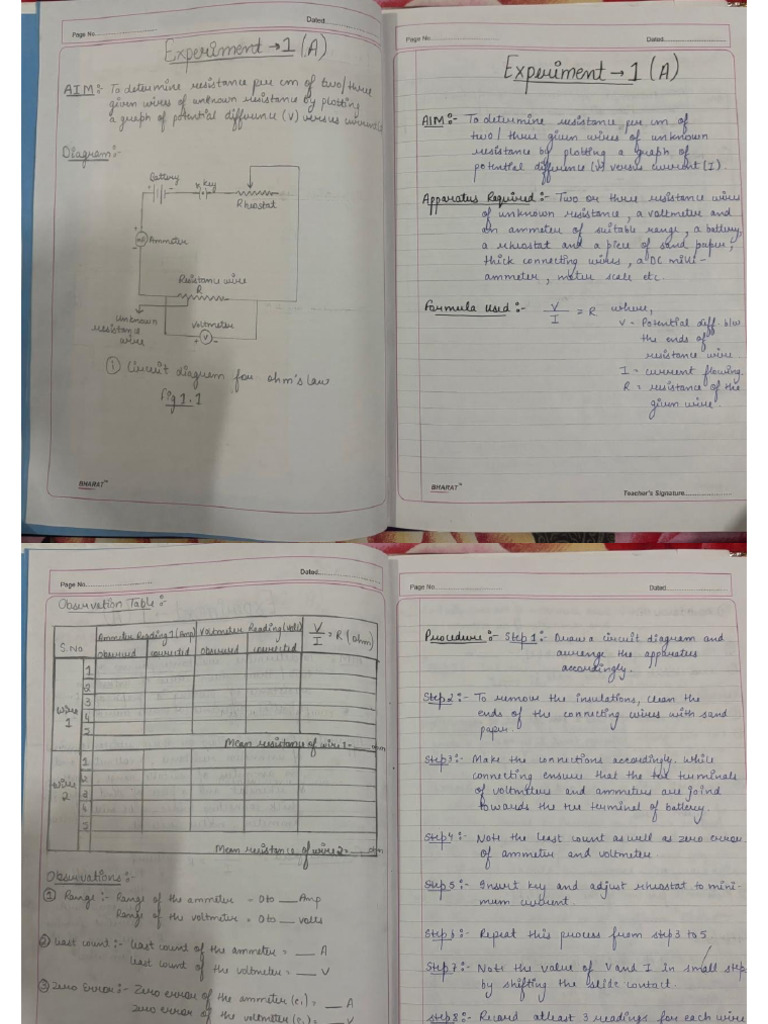 Page No.
Dated
Experiment → 1 (A)
AIM:- To determine resistance per cm of two/three
given wires of unknown resistance by plotting
a graph of potential difference (V) versus current
Diagram:-
Battery
key
Rheostat
Ammeter
Resistance wire
R
Unknown
resistance
wire
Voltmeter
+ V -
① Circuit diagram for ohm's law
Fig 1.1
BHARAT
Page No.
Dated
Experiment → 1 (A)
AIM:- To determine resistance per cm of
two/three given wires of unknown
resistance by plotting a graph of
potential difference (V) versus current (I).
Apparatus Required:- Two or three resistance wires
of unknown resistance, a voltmeter and
an ammeter of suitable range, a battery,
a rheostat and a piece of sand paper,
thick connecting wires, a DC milli-
ammeter, meter scale etc.
Formula used:- V/I = R where,
V = Potential diff. b/w
the ends of
resistance wire
I = current flowing.
R = resistance of the
given wire.
BHARAT
Teacher's Signature
Page No.
Dated
Observation Table:-
S.No Ammeter Reading I (Amp) Voltmeter Reading (Volt) V/I = R (ohm)
observed corrected observed corrected
wire 1
1
2
3
4
5
Mean resistance of wire 1= ohm
wire 2
1
2
3
4
5
Mean resistance of wire 2= ohm
Observations:-
① Range:- Range of the ammeter = 0 to __ Amp
Range of the voltmeter = 0 to __ volts
② Least count:- Least count of the ammeter = __ A
Least count of the voltmeter = __ V
③ Zero Error:- Zero error of the ammeter (e₁) = __ A
Zero error of the voltmeter (e₂) = __ V
Page No.
Dated
Procedure:- Step 1:- Draw a circuit diagram and
arrange the apparatus
accordingly.
Step 2:- To remove the insulations, clean the
ends of the connecting wires with sand
paper.
Step 3:- Make the connections accordingly. While
connecting ensure that the +ve terminals
of voltmeters and ammeters are joind
towards the +ve terminal of battery.
Step 4:- Note the least count as well as zero error
of ammeter and voltmeter.
Step 5:- Insert key and adjust rheostat to mini-
mum current.
Step 6:- Repeat this process from step 3 to 5
Step 7:- Note the value of V and I in small step
by shifting the slide contact.
Step 8:- Record atleast 3 readings for each wire